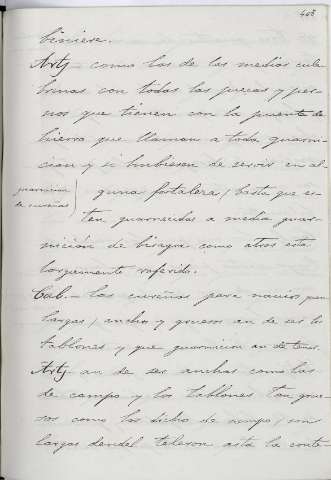 408
biniere.
Art.- como las de las medias cule
brinas con todas las piezas y per-
nos que tienen con la puente de
hierro que llaman a toda guarni-
cion y si hubiesen de servir en al-
guarnicion
de cureñas
guna fortaleza / basta que es-
ten guarnecidas a media guar-
nición de bisagra como atras esta
largamente referido.
Cab.- las cureñas para navios que
largas / anchas y gruesos an de ser los
tablones y que guarnicion an de tener.
Art.- an de ser anchas como las
de campo y los tablones tan grue-
sos como los dicho de campo / son
largas desdel teleron asta la conte-